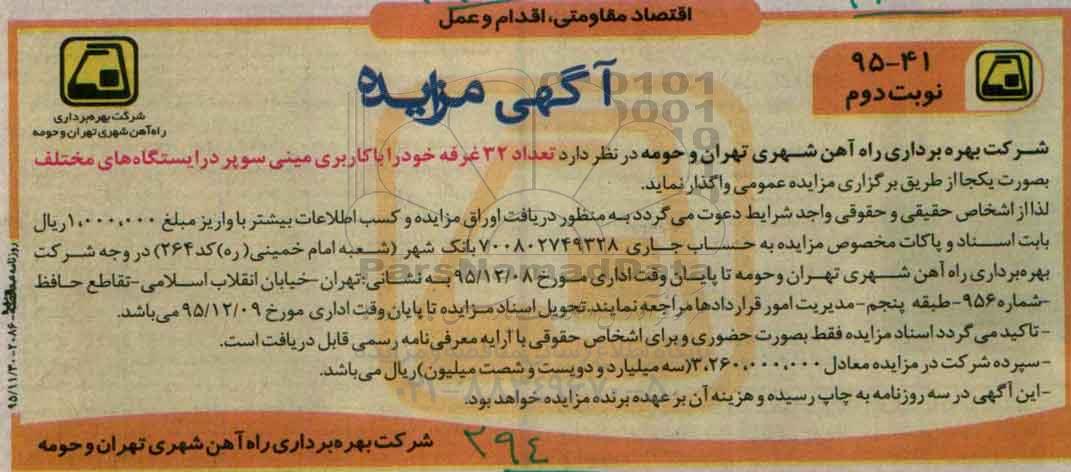 اقتصاد مقاومتی، اقدام و عمل
۹۵-۴۱
نوبت دوم
آگهی مزایده
شرکت بهره‌برداری
راه‌آهن شهری تهران و حومه
شرکت بهره برداری راه آهن شهری تهران و حومه در نظر دارد تعداد ۳۲ غرفه خود را با کاربری مینی سوپر در ایستگاه‌های مختلف
بصورت یکجا از طریق برگزاری مزایده عمومی واگذار نماید.
لذا از اشخاص حقیقی و حقوقی واجد شرایط دعوت می گردد به منظور دریافت اوراق مزایده و کسب اطلاعات بیشتر با واریز مبلغ ۱,۰۰۰,۰۰۰ ریال
بابت اسناد و پاکات مخصوص مزایده به حساب جاری ۷۰۰۸۰۲۷۴۹۳۲۸ بانک شهر (شعبه امام خمینی (ره) کد ۲۶۴) در وجه شرکت
بهره‌برداری راه آهن شهری تهران وحومه تا پایان وقت اداری مورخ ۹۵/۱۲/۰۸ به نشانی: تهران-خیابان انقلاب اسلامی-تقاطع حافظ
-شماره ۹۵۶-طبقه پنجم-مدیریت امور قراردادها مراجعه نمایند. تحویل اسناد مزایده تا پایان وقت اداری مورخ ۹۵/۱۲/۰۹ می‌باشد.
-تاکید می گردد اسناد مزایده فقط بصورت حضوری و برای اشخاص حقوقی با ارایه معرفی نامه رسمی قابل دریافت است.
-سپرده شرکت در مزایده معادل ۳,۲۶۰,۰۰۰,۰۰۰ (سه میلیارد و دویست و شصت میلیون) ریال می باشد.
-این آگهی در سه روزنامه به چاپ رسیده و هزینه آن بر عهده برنده مزایده خواهد بود.
شرکت بهره برداری راه آهن شهری تهران و حومه
۲۹۴
ParsNamadData
۰۲۱-۸۸۳۴۹۶۷۰-۵
۹۵/۱۱/۳۰-۲۰۸۶